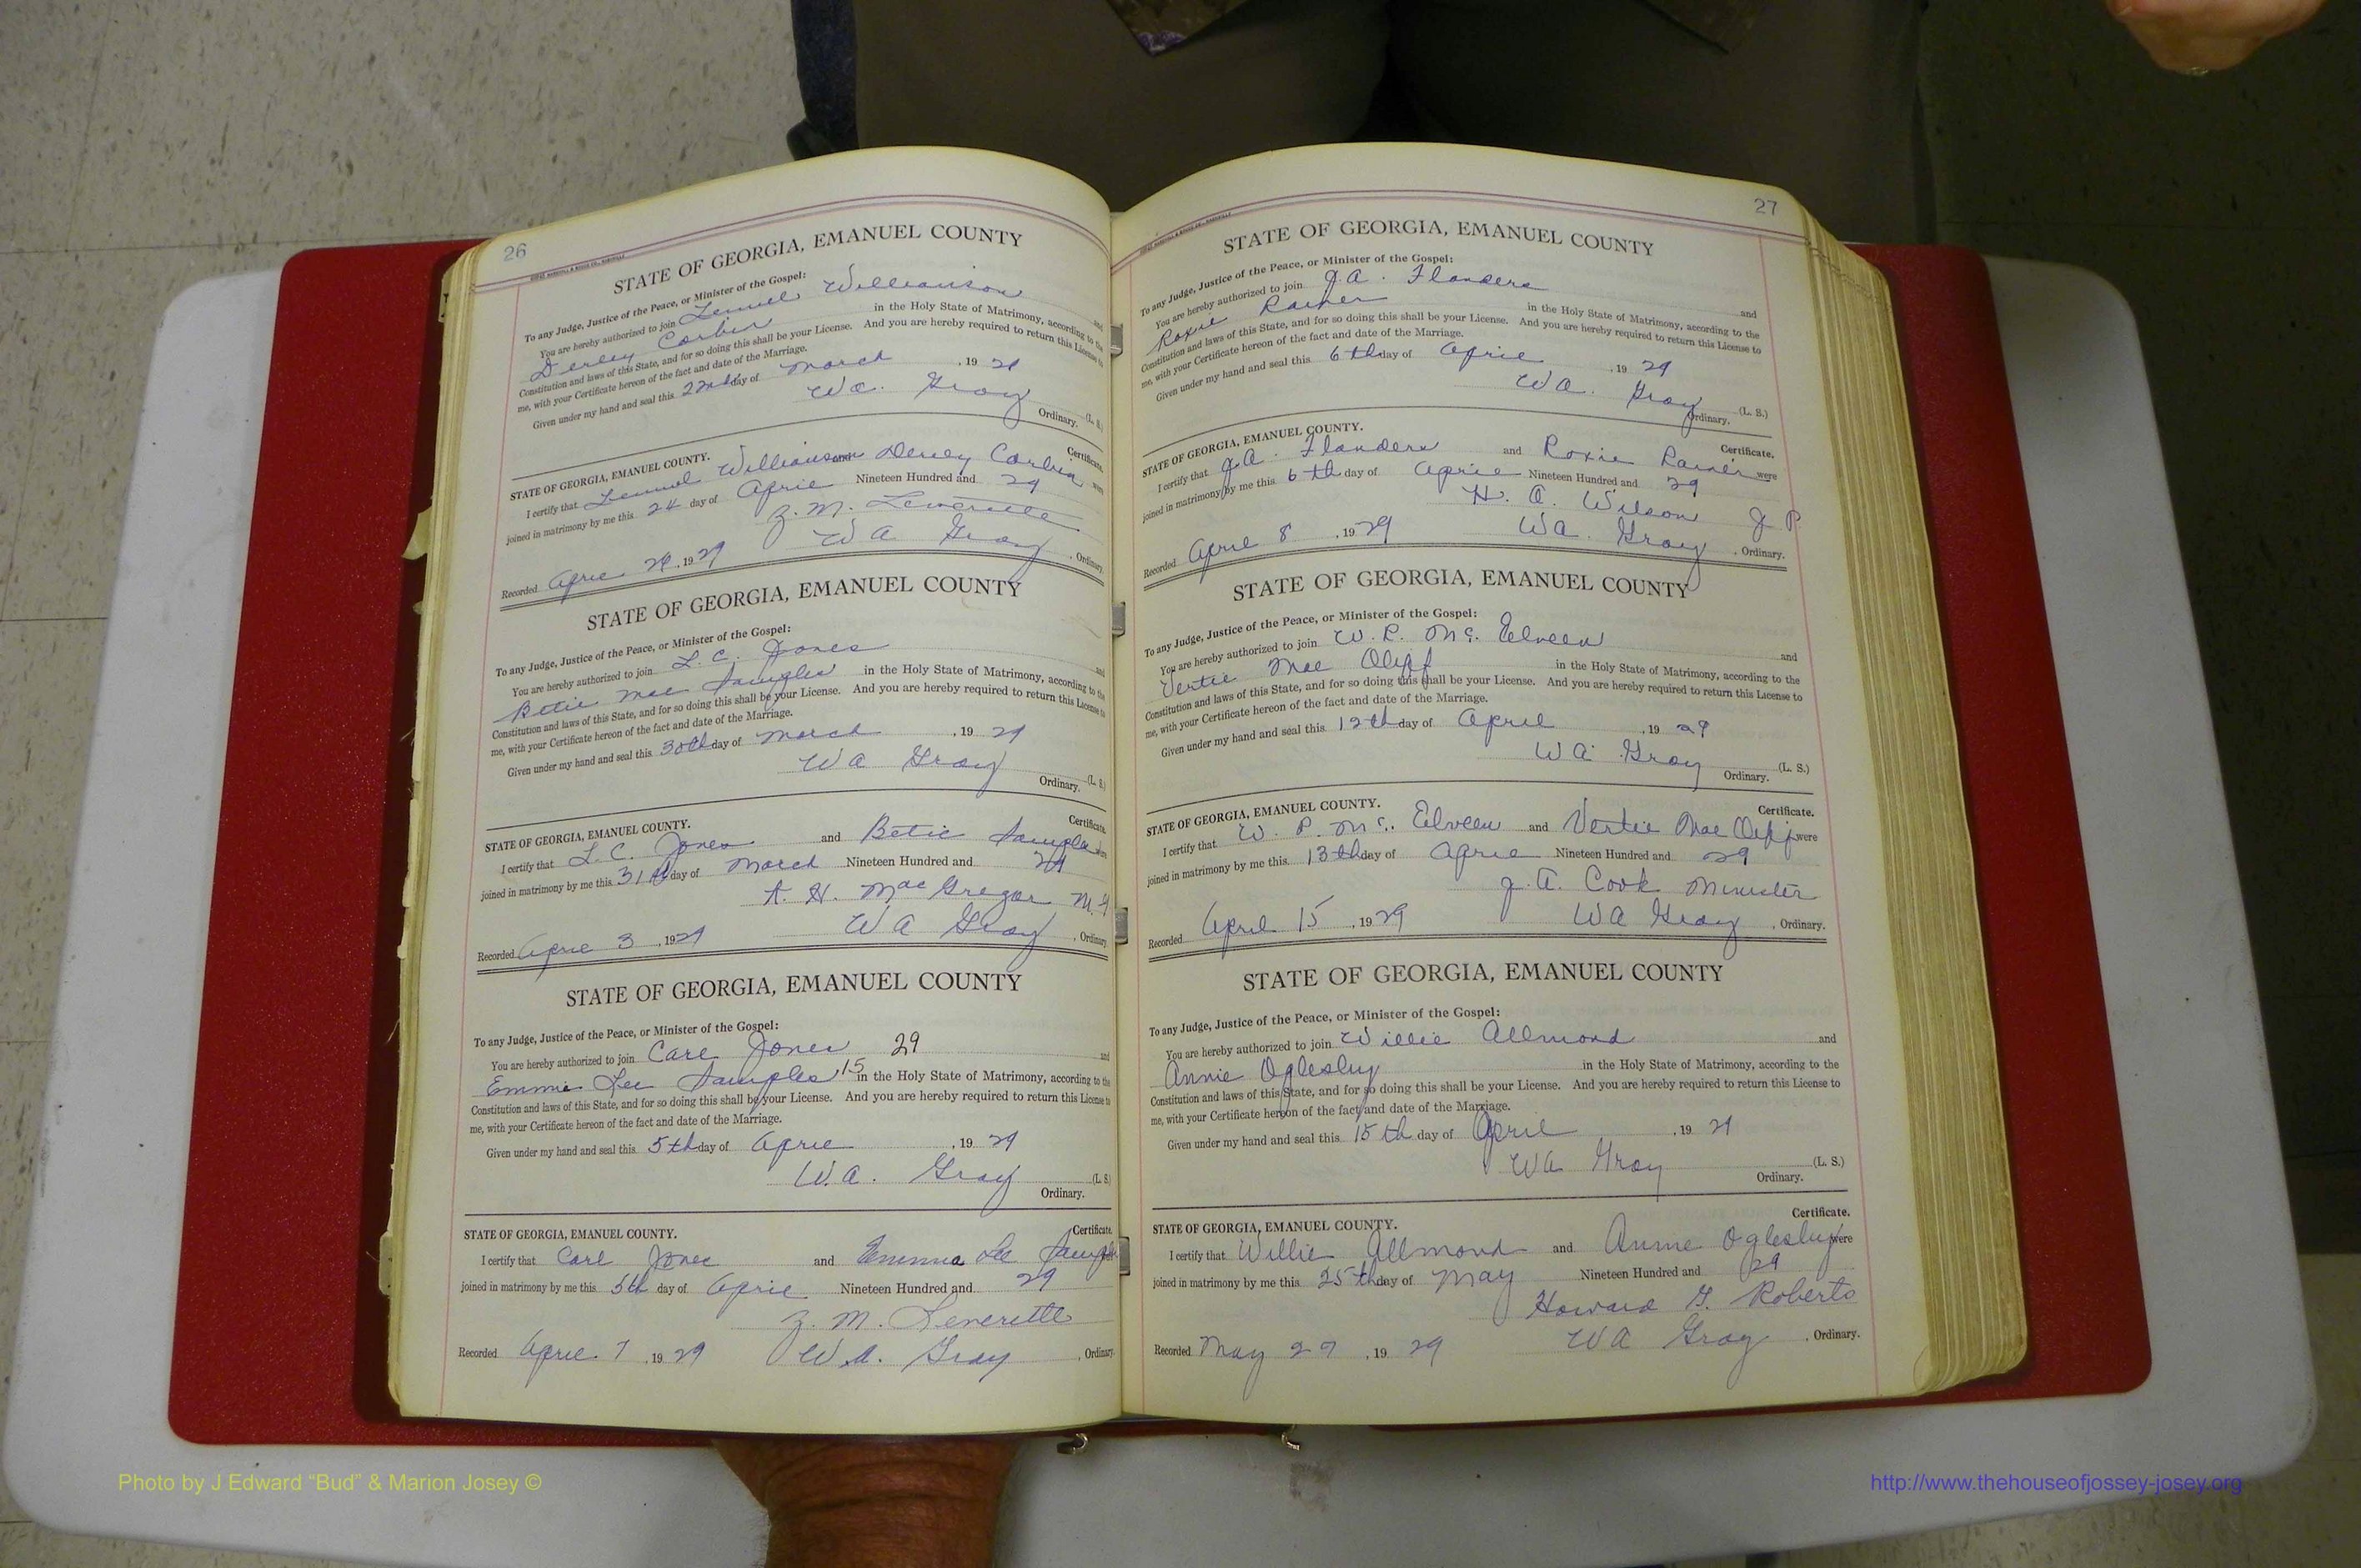 26
STATE OF GEORGIA, EMANUEL COUNTY
To any Judge, Justice of the Peace, or Minister of the Gospel:
You are hereby authorized to join Lemuel Williamson and
Dewey Corbin in the Holy State of Matrimony, according to the
Constitution and laws of this State, and for so doing this shall be your License. And you are hereby required to return this License to
me, with your Certificate hereon of the fact and date of the Marriage.
Given under my hand and seal this 22nd day of March, 1929
W.A. Gray (L. S.)
Ordinary.
STATE OF GEORGIA, EMANUEL COUNTY. Certificate.
I certify that Lemuel Williamson and Dewey Corbin were
joined in matrimony by me this 24 day of April Nineteen Hundred and 29
Z. M. Leverette
Recorded April, 1929 W A Gray, Ordinary.
STATE OF GEORGIA, EMANUEL COUNTY
To any Judge, Justice of the Peace, or Minister of the Gospel:
You are hereby authorized to join L. C. Jones and
Betie Mae Samples in the Holy State of Matrimony, according to the
Constitution and laws of this State, and for so doing this shall be your License. And you are hereby required to return this License to
me, with your Certificate hereon of the fact and date of the Marriage.
Given under my hand and seal this 30th day of March, 1929
W A Gray (L. S.)
Ordinary.
STATE OF GEORGIA, EMANUEL COUNTY. Certificate.
I certify that L. C. Jones and Betie Samples were
joined in matrimony by me this 31st day of March Nineteen Hundred and 29
A. H. MacGregor M.G
Recorded April 3, 1929 W A Gray, Ordinary
STATE OF GEORGIA, EMANUEL COUNTY
To any Judge, Justice of the Peace, or Minister of the Gospel:
You are hereby authorized to join Carl Jones 29 and
Emmie Lee Samples 15 in the Holy State of Matrimony, according to the
Constitution and laws of this State, and for so doing this shall be your License. And you are hereby required to return this License to
me, with your Certificate hereon of the fact and date of the Marriage.
Given under my hand and seal this 5th day of April, 1929
W.A. Gray (L. S.)
Ordinary.
STATE OF GEORGIA, EMANUEL COUNTY. Certificate.
I certify that Carl Jones and Emma Lee Samples
joined in matrimony by me this 5th day of April Nineteen Hundred and 29
Z. M. Leverette
Recorded April 7, 1929 W.A. Gray, Ordinary.
27
STATE OF GEORGIA, EMANUEL COUNTY
To any Judge, Justice of the Peace, or Minister of the Gospel:
You are hereby authorized to join J.A. Flanders and
Roxie Rainer in the Holy State of Matrimony, according to the
Constitution and laws of this State, and for so doing this shall be your License. And you are hereby required to return this License to
me, with your Certificate hereon of the fact and date of the Marriage.
Given under my hand and seal this 6th day of April, 1929
W A. Gray (L. S.)
Ordinary.
STATE OF GEORGIA, EMANUEL COUNTY. Certificate.
I certify that J.A. Flanders and Roxie Rainer were
joined in matrimony by me this 6th day of April Nineteen Hundred and 29
H. A. Wilson J P
Recorded April 8, 1929 W A. Gray, Ordinary.
STATE OF GEORGIA, EMANUEL COUNTY
To any Judge, Justice of the Peace, or Minister of the Gospel:
You are hereby authorized to join W. P. Mc. Elveen and
Vertie Mae Oliff in the Holy State of Matrimony, according to the
Constitution and laws of this State, and for so doing this shall be your License. And you are hereby required to return this License to
me, with your Certificate hereon of the fact and date of the Marriage.
Given under my hand and seal this 12th day of April, 1929
W A. Gray (L. S.)
Ordinary.
STATE OF GEORGIA, EMANUEL COUNTY. Certificate.
I certify that W. P. Mc. Elveen and Vertie Mae Oliff were
joined in matrimony by me this 13th day of April Nineteen Hundred and 29
J. A. Cook Minister
Recorded April 15, 1929 W A Gray, Ordinary.
STATE OF GEORGIA, EMANUEL COUNTY
To any Judge, Justice of the Peace, or Minister of the Gospel:
You are hereby authorized to join Willie Allmond and
Annie Oglesby in the Holy State of Matrimony, according to the
Constitution and laws of this State, and for so doing this shall be your License. And you are hereby required to return this License to
me, with your Certificate hereon of the fact and date of the Marriage.
Given under my hand and seal this 15th day of April, 1929
W A Gray (L. S.)
Ordinary.
STATE OF GEORGIA, EMANUEL COUNTY. Certificate.
I certify that Willie Allmond and Annie Oglesby were
joined in matrimony by me this 25th day of May Nineteen Hundred and 29
Howard G. Roberts
Recorded May 27, 1929 W A Gray, Ordinary.
Photo by J Edward “Bud” & Marion Josey ©
http://www.thehouseofjossey-josey.org